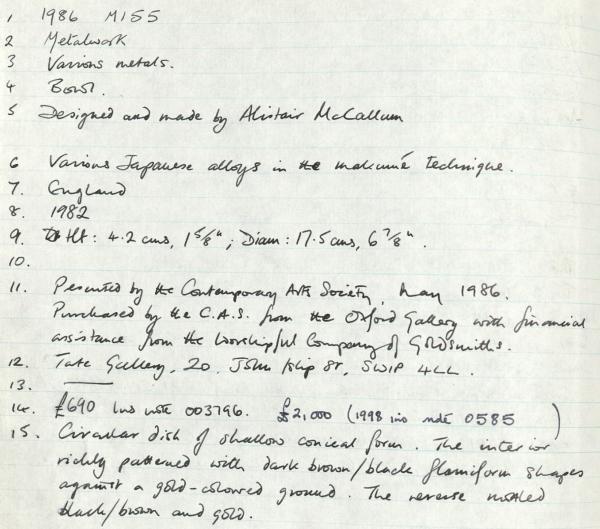 1 1986 M155
2 Metalwork
3 Various metals.
4 Bowl.
5 Designed and made by Alistair McCallum
6 Various Japanese alloys in the makumé technique.
7. England
8. 1982
9. Ht: 4.2 cms, 1 5/8"; Diam: 17.5 cms, 6 7/8".
10.
11. Presented by the Contemporary Arts Society, May 1986.
Purchased by the C.A.S. from the Oxford Gallery with financial
assistance from the Worshipful Company of Goldsmiths.
12. Tate Gallery, 20, John Islip St, SW1P 4LL.
13. ———
14. £690 Ins note 003796. £2,000 (1998 ins note 0585)
15. Circular dish of shallow conical form. The interior
richly patterned with dark brown/black flamiform shapes
against a gold-coloured ground. The reverse mottled
black/brown and gold.